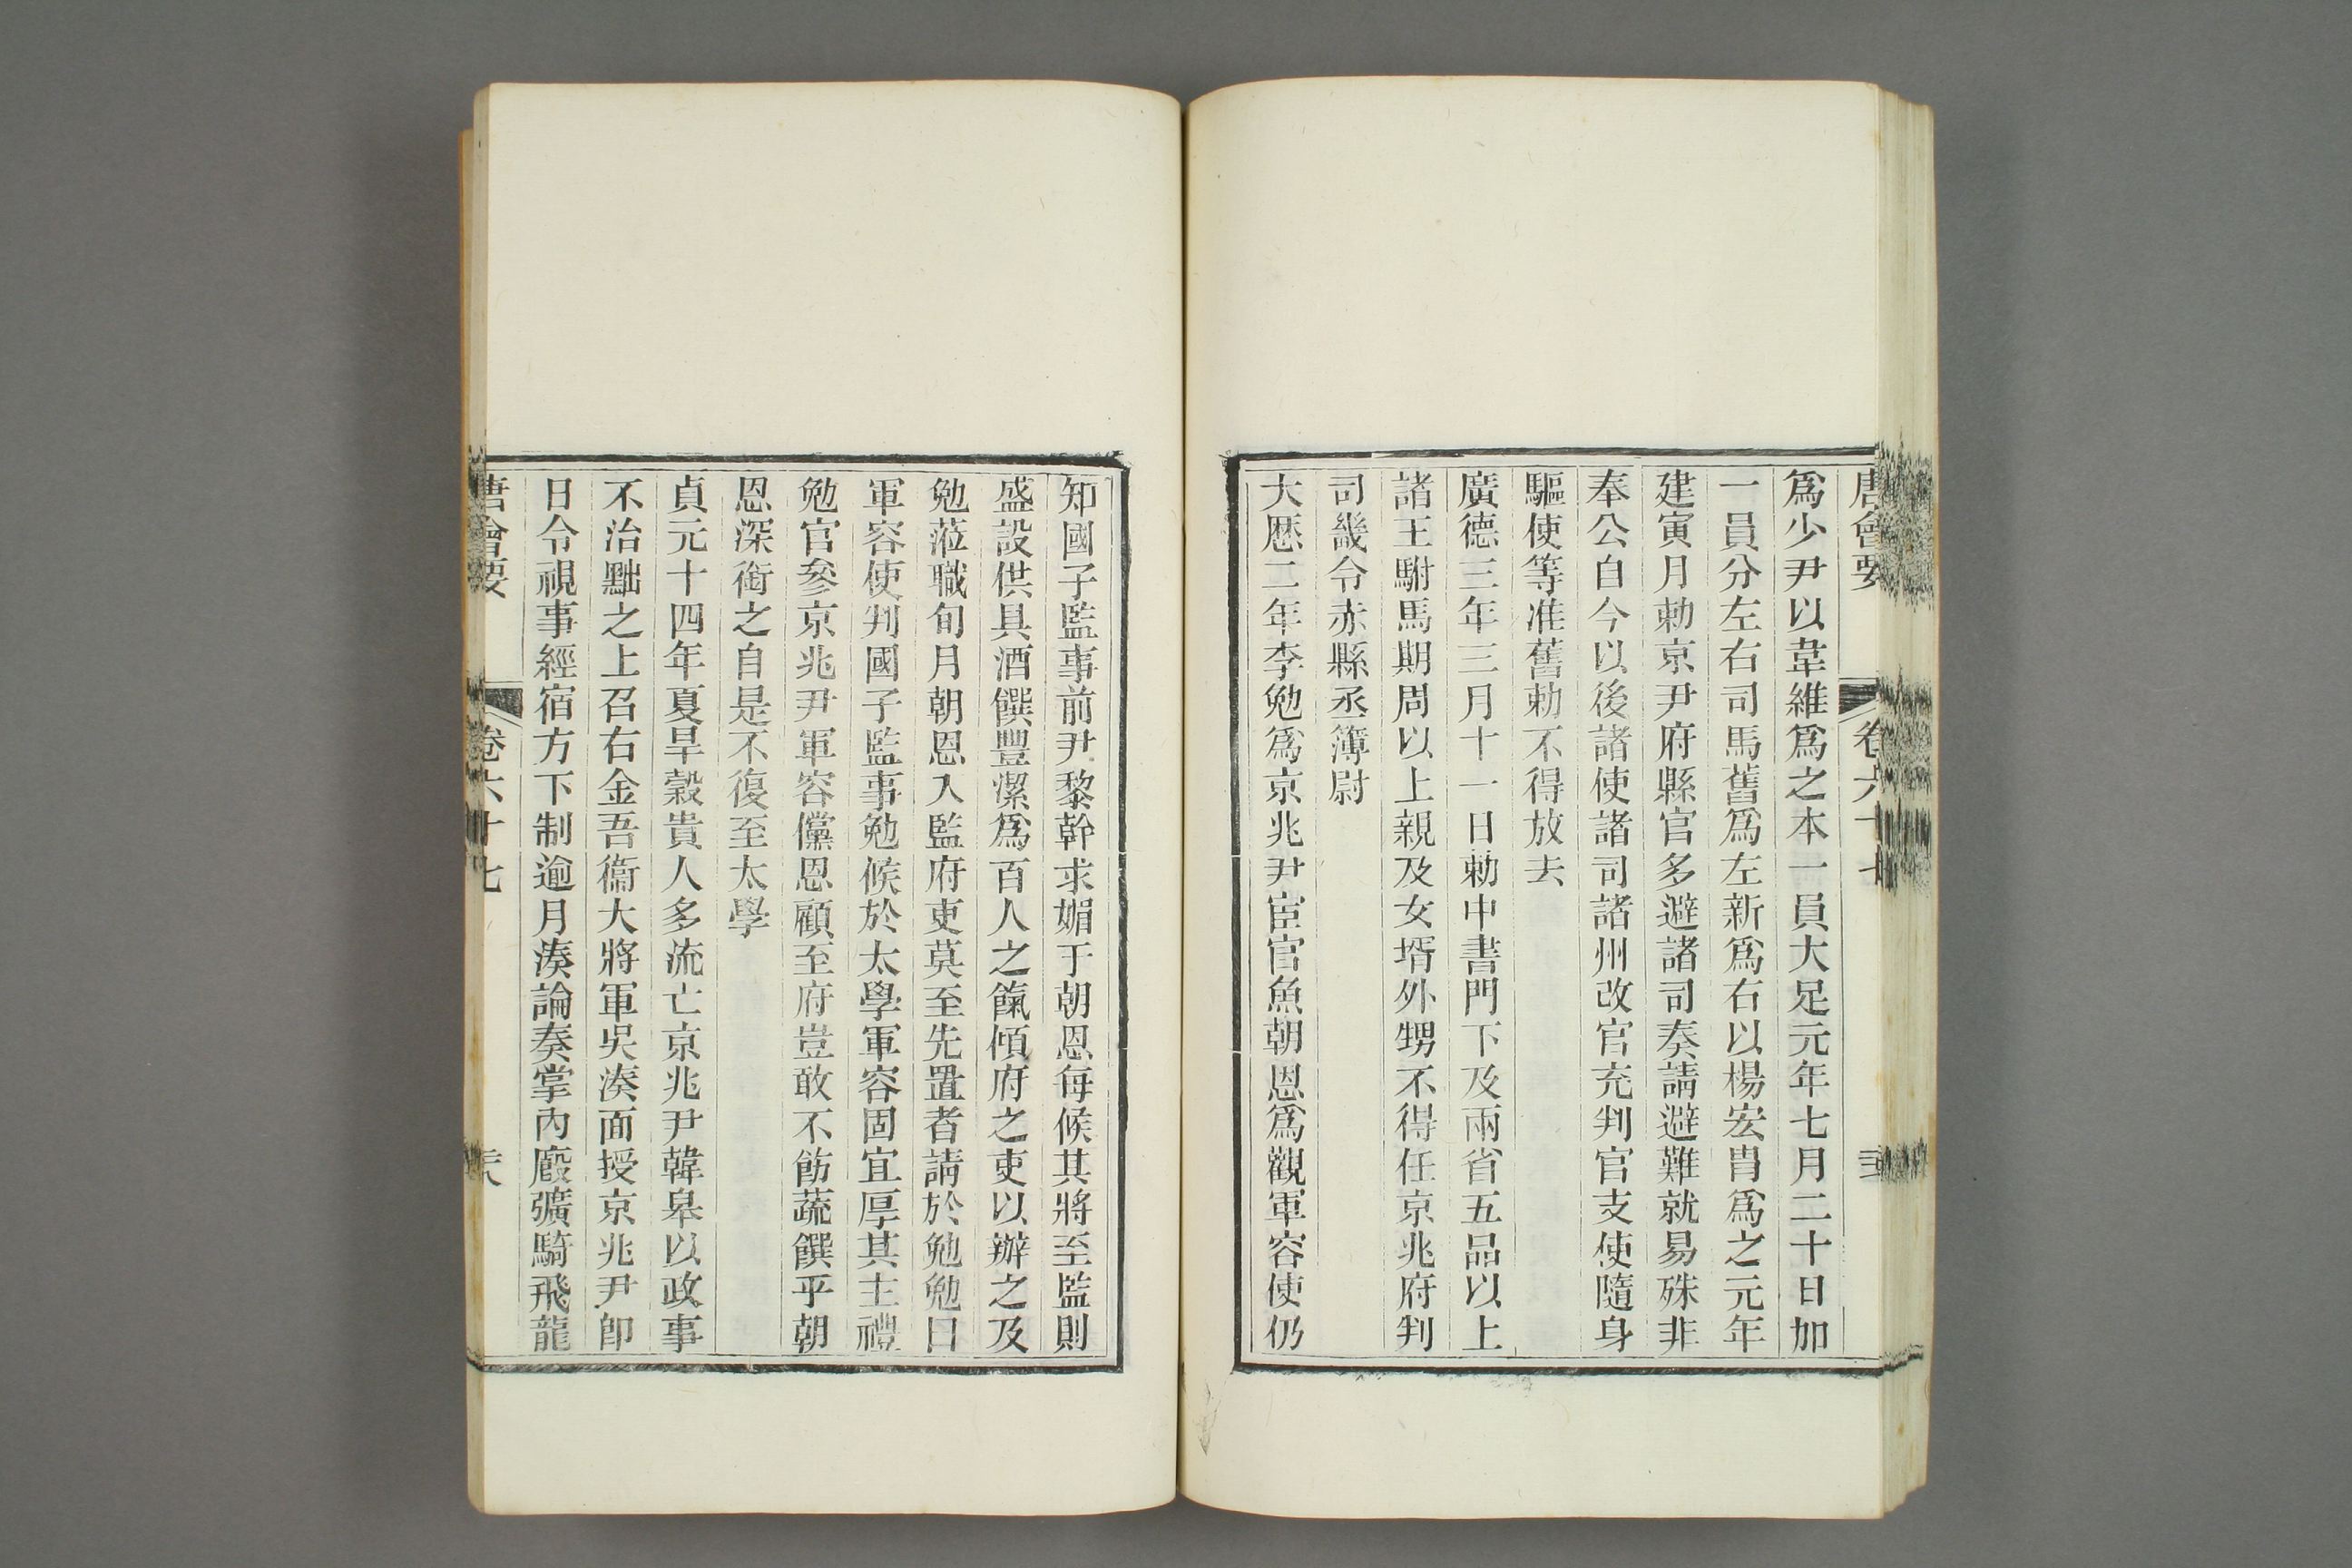 唐會要 卷六十七
爲少尹以韋維爲之本一員大足元年七月二十日加
一員分左右司馬舊爲左新爲右以楊宏胄爲之元年
建寅月勅京尹府縣官多避諸司奏請避難就易殊非
奉公自今以後諸使諸司諸州改官充判官支使隨身
驅使等准舊勅不得放去
廣德三年三月十一日勅中書門下及兩省五品以上
諸王駙馬期周以上親及女壻外甥不得任京兆府判
司畿令赤縣丞簿尉
大厯二年李勉爲京兆尹宦官魚朝恩爲觀軍容使仍
知國子監事前尹黎幹求媚于朝恩每候其將至監則
盛設供具酒饌豐潔爲百人之餼傾府之吏以辦之及
勉蒞職旬月朝恩入監府吏莫至先置者請於勉勉曰
軍容使判國子監事勉候於太學軍容固宜厚其主禮
勉官參京兆尹軍容儻恩顧至府豈敢不飭蔬饌乎朝
恩深銜之自是不復至太學
貞元十四年夏旱穀貴人多流亡京兆尹韓皋以政事
不治黜之上召右金吾衞大將軍吳湊面授京兆尹卽
日令視事經宿方下制逾月湊論奏掌內廄彍騎飛龍
唐會要 卷六十七